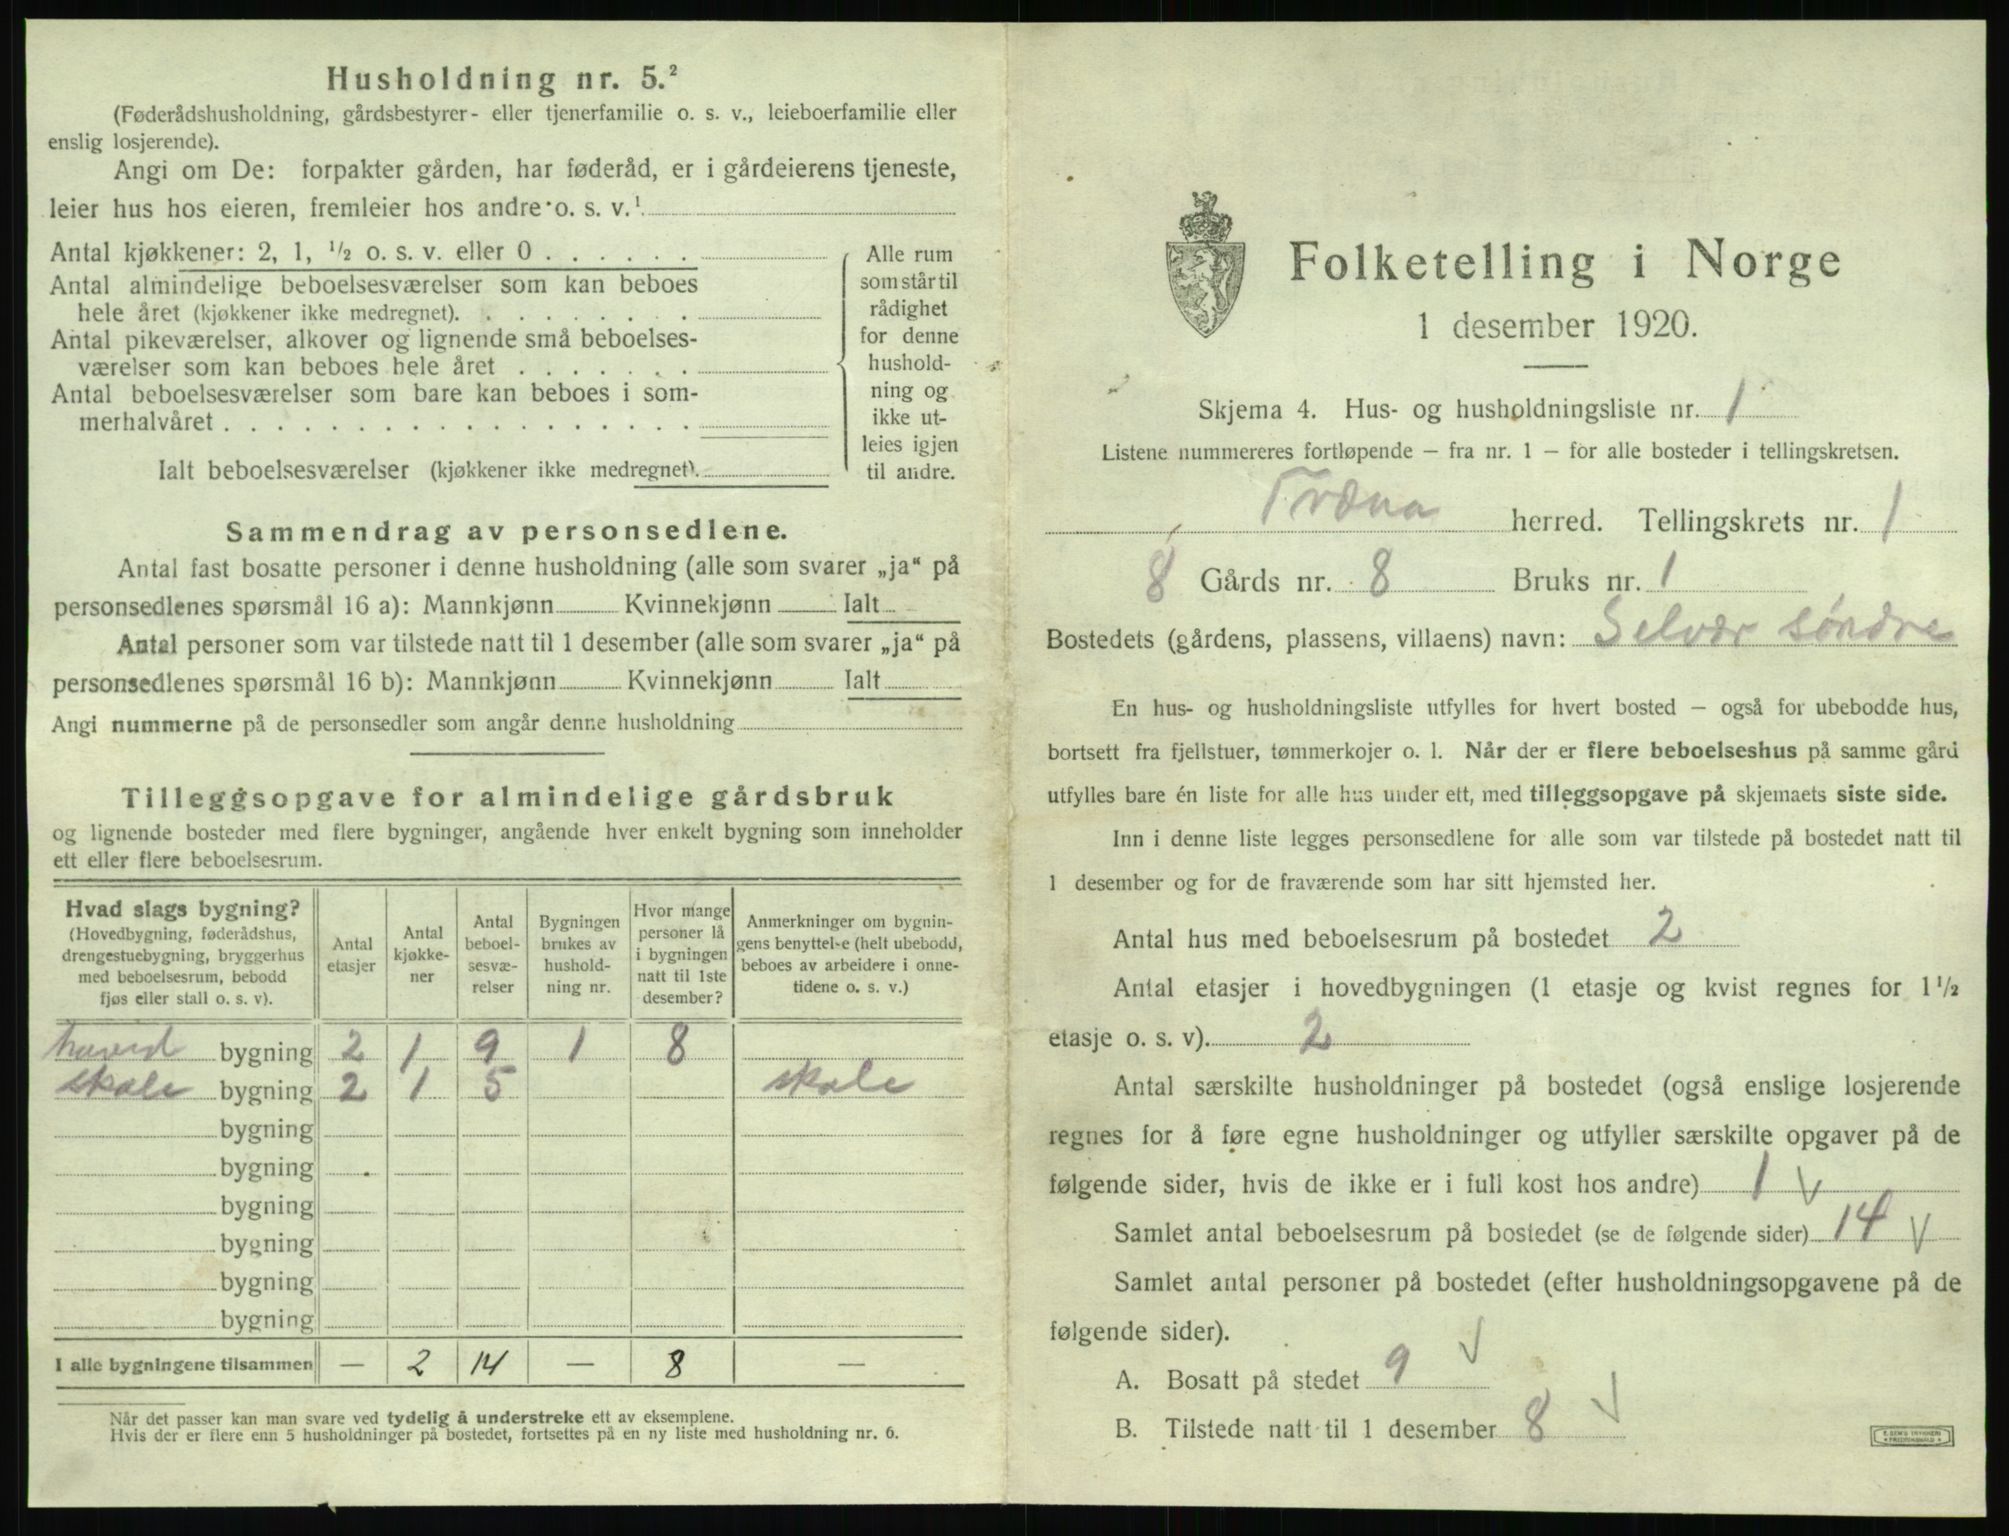 Husholdning nr. 5.²
(Føderådshusholdning, gårdsbestyrer- eller tjenerfamilie o. s. v., leieboerfamilie eller
enslig losjerende).
Angi om De: forpakter gården, har føderåd, er i gårdeierens tjeneste,
leier hus hos eieren, fremleier hos andre o. s. v.¹
Antal kjøkkener: 2, 1, ½ o. s. v. eller 0 . . . . . .
Antal almindelige beboelsesværelser som kan beboes
hele året (kjøkkener ikke medregnet). . . . . . . .
Antal pikeværelser, alkover og lignende små beboelses-
værelser som kan beboes hele året . . . . . . .
Antal beboelsesværelser som bare kan beboes i som-
merhalvåret . . . . . . . . . . . . . . . . . .
Ialt beboelsesværelser (kjøkkener ikke medregnet).
Alle rum
som står til
rådighet
for denne
hushold-
ning og
ikke ut-
leies igjen
til andre.
Sammendrag av personsedlene.
Antal fast bosatte personer i denne husholdning (alle som svarer „ja“ på
personsedlenes spørsmål 16 a): Mannkjønn Kvinnekjønn Ialt
Antal personer som var tilstede natt til 1 desember (alle som svarer „ja“ på
personsedlenes spørsmål 16 b): Mannkjønn Kvinnekjønn Ialt
Angi nummerne på de personsedler som angår denne husholdning
Tilleggsopgave for almindelige gårdsbruk
og lignende bosteder med flere bygninger, angående hver enkelt bygning som inneholder
ett eller flere beboelsesrum.
Hvad slags bygning?
(Hovedbygning, føderådshus,
drengestuebygning, bryggerhus
med beboelsesrum, bebodd
fjøs eller stall o. s. v).
Antal
etasjer
Antal
kjøkke-
ner
Antal
beboel-
sesvæ-
relser
Bygningen
brukes av
hushold-
ning nr.
Hvor mange
personer lå
i bygningen
natt til 1ste
desember?
Anmerkninger om bygnin-
gens benyttelse (helt ubebodd,
beboes av arbeidere i onne-
tidene o. s. v.)
hoved bygning 2 1 9 1 8
skole bygning 2 1 5 skole
bygning
bygning
bygning
bygning
bygning
bygning
I alle bygningene tilsammen — 2 14 — 8 —
Når det passer kan man svare ved tydelig å understreke ett av eksemplene.
Hvis der er flere enn 5 husholdninger på bostedet, fortsettes på en ny liste med husholdning nr. 6.
Folketelling i Norge
1 desember 1920.
Skjema 4. Hus- og husholdningsliste nr. 1
Listene nummereres fortløpende – fra nr. 1 – for alle bosteder i tellingskretsen.
Træna herred. Tellingskrets nr. 1
8 Gårds nr. 8 Bruks nr. 1
Bostedets (gårdens, plassens, villaens) navn: Selvær søndre
En hus- og husholdningsliste utfylles for hvert bosted – også for ubebodde hus,
bortsett fra fjellstuer, tømmerkojer o. l. Når der er flere beboelseshus på samme gård
utfylles bare én liste for alle hus under ett, med tilleggsopgave på skjemaets siste side.
Inn i denne liste legges personsedlene for alle som var tilstede på bostedet natt til
1 desember og for de fraværende som har sitt hjemsted her.
Antal hus med beboelsesrum på bostedet 2
Antal etasjer i hovedbygningen (1 etasje og kvist regnes for 1½
etasje o. s. v). 2
Antal særskilte husholdninger på bostedet (også enslige losjerende
regnes for å føre egne husholdninger og utfyller særskilte opgaver på de
følgende sider, hvis de ikke er i full kost hos andre) 1
Samlet antal beboelsesrum på bostedet (se de følgende sider) 14
Samlet antal personer på bostedet (efter husholdningsopgavene på de
følgende sider).
A. Bosatt på stedet 9
B. Tilstede natt til 1 desember 8